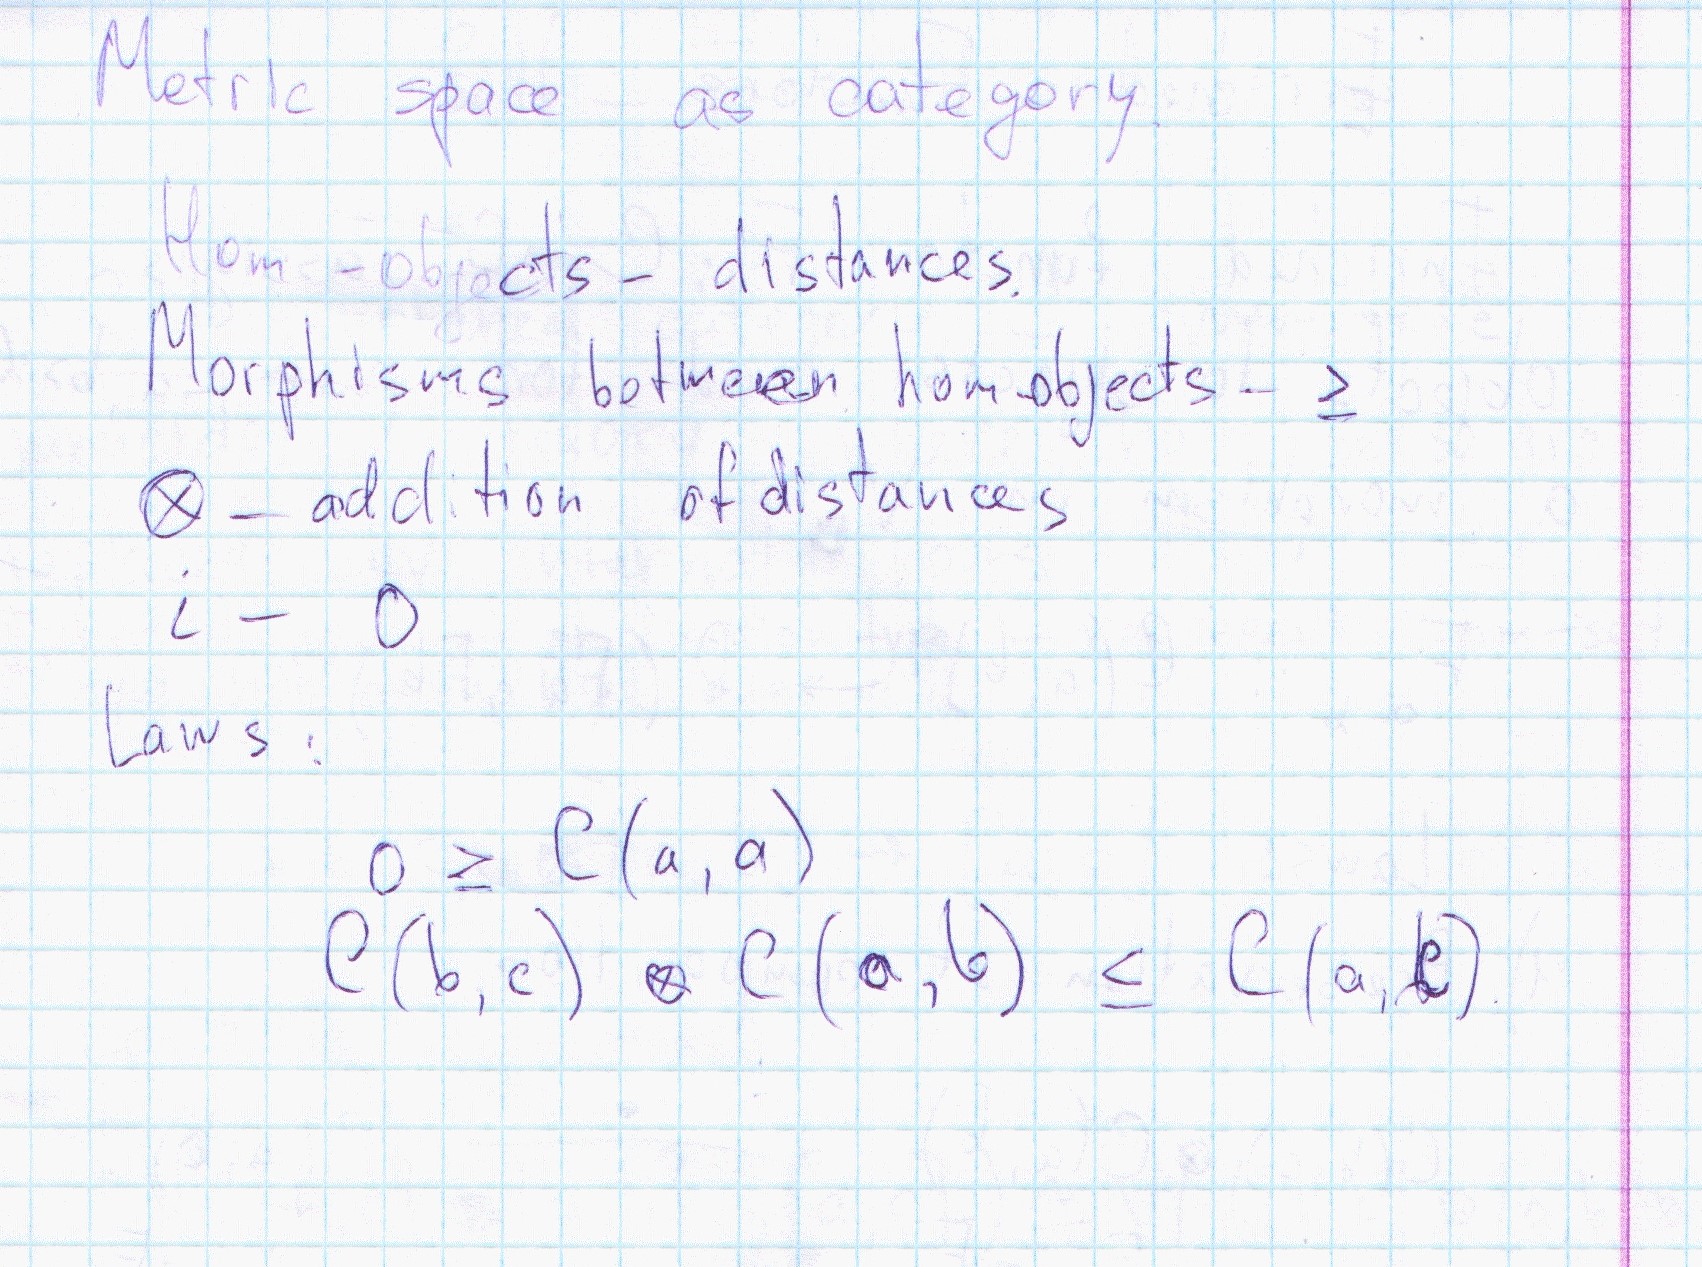 Metric space as category.
Hom-objects - distances.
Morphisms between hom-objects - ≥
⊗ - addition of distances
i - 0
Laws:
0 ≥ C(a, a)
C(b, c) ⊗ C(a, b) ≤ C(a, c).